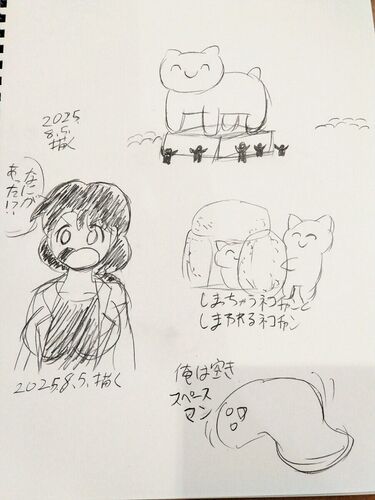 2025.
8.5.
描く
なにが
あった!?
2025.8.5.描く
しまっちゃうネコチャンと
しまわれるネコチャン
俺は空き
スペース
マン